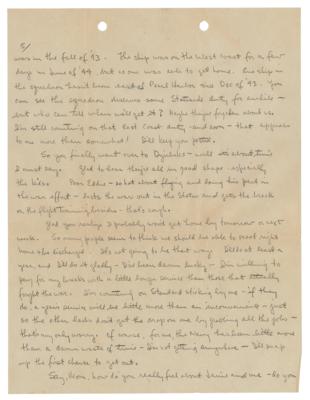 5/
was in the fall of '43. The ship was on the West coast for a few
days in June of '44, but no one was able to get home. One ship in
the squadron hasn't been east of Pearl Harbor since Dec of '43. You
can see this squadron deserves some Stateside duty for awhile -
but who can tell when we'll get it? Maybe they've forgotten about us.
I'm still counting on that East Coast duty - and soon - that appeals
to me more than somewhat! I'll keep you posted.
So you finally went over to - well about time
I must say. Glad to hear they're all in good shape - especially
the kids. Poor Eddie - so hot about flying and doing his part in
the war effort - lasts the war out in the States and gets the break
on the flight training - that's rough.
Dad you really I probably won't get home by tomorrow or next
week. So many people seem to think we should be able to head right
home & be discharged. It's not going to be that way. I'll do at least a
year, and I'll do it gladly - I've been damn lucky - I'm willing to
pay for my breaks with a little longer service than those that really
fought the war. I'm counting on Standard sticking by me - if they
do, a year's service would be little more than an inconvenience - just
so the other lads don't get the drop on me by grabbing all the jobs -
that's my only worry. Of course, for me the Navy has been little more
than a damn waste of time - I'm not getting anywhere - I'll jump
up the first chance to get out.
Say, Mom, how do you really feel about Janie and me - do you